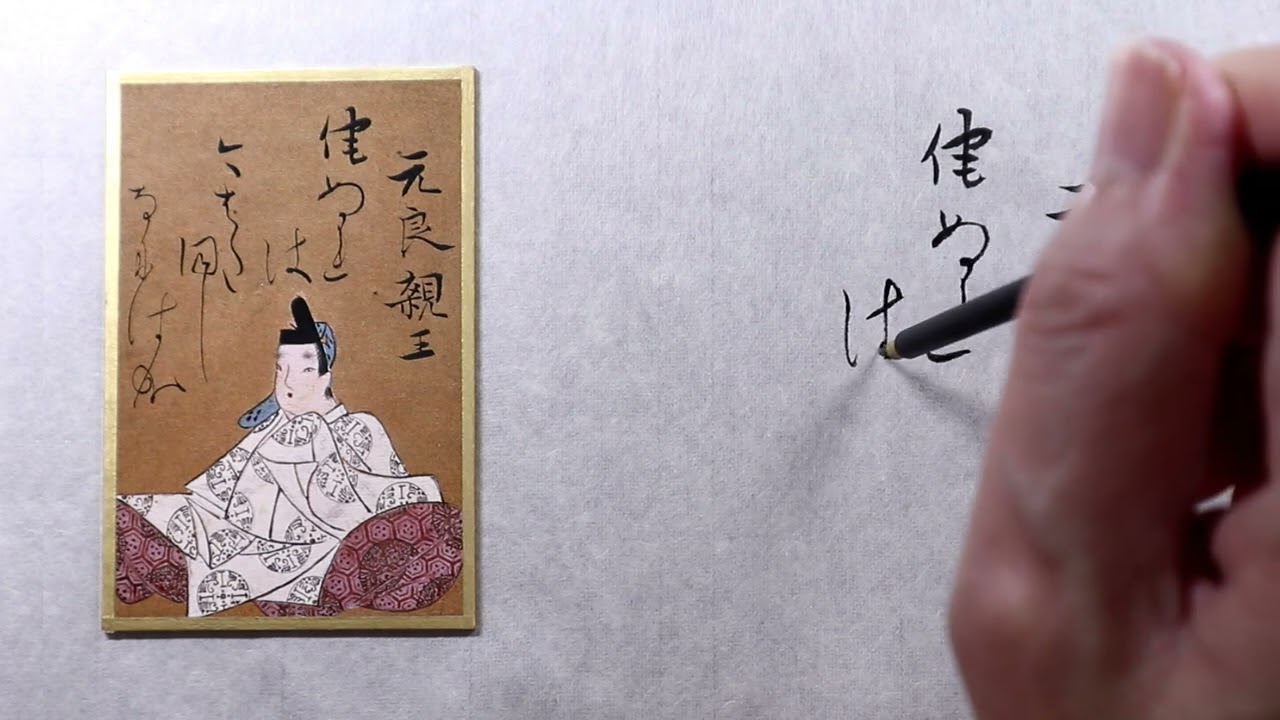 元良親王
侘ぬれ
は
今はた
同し
なには
侘ぬれ
は